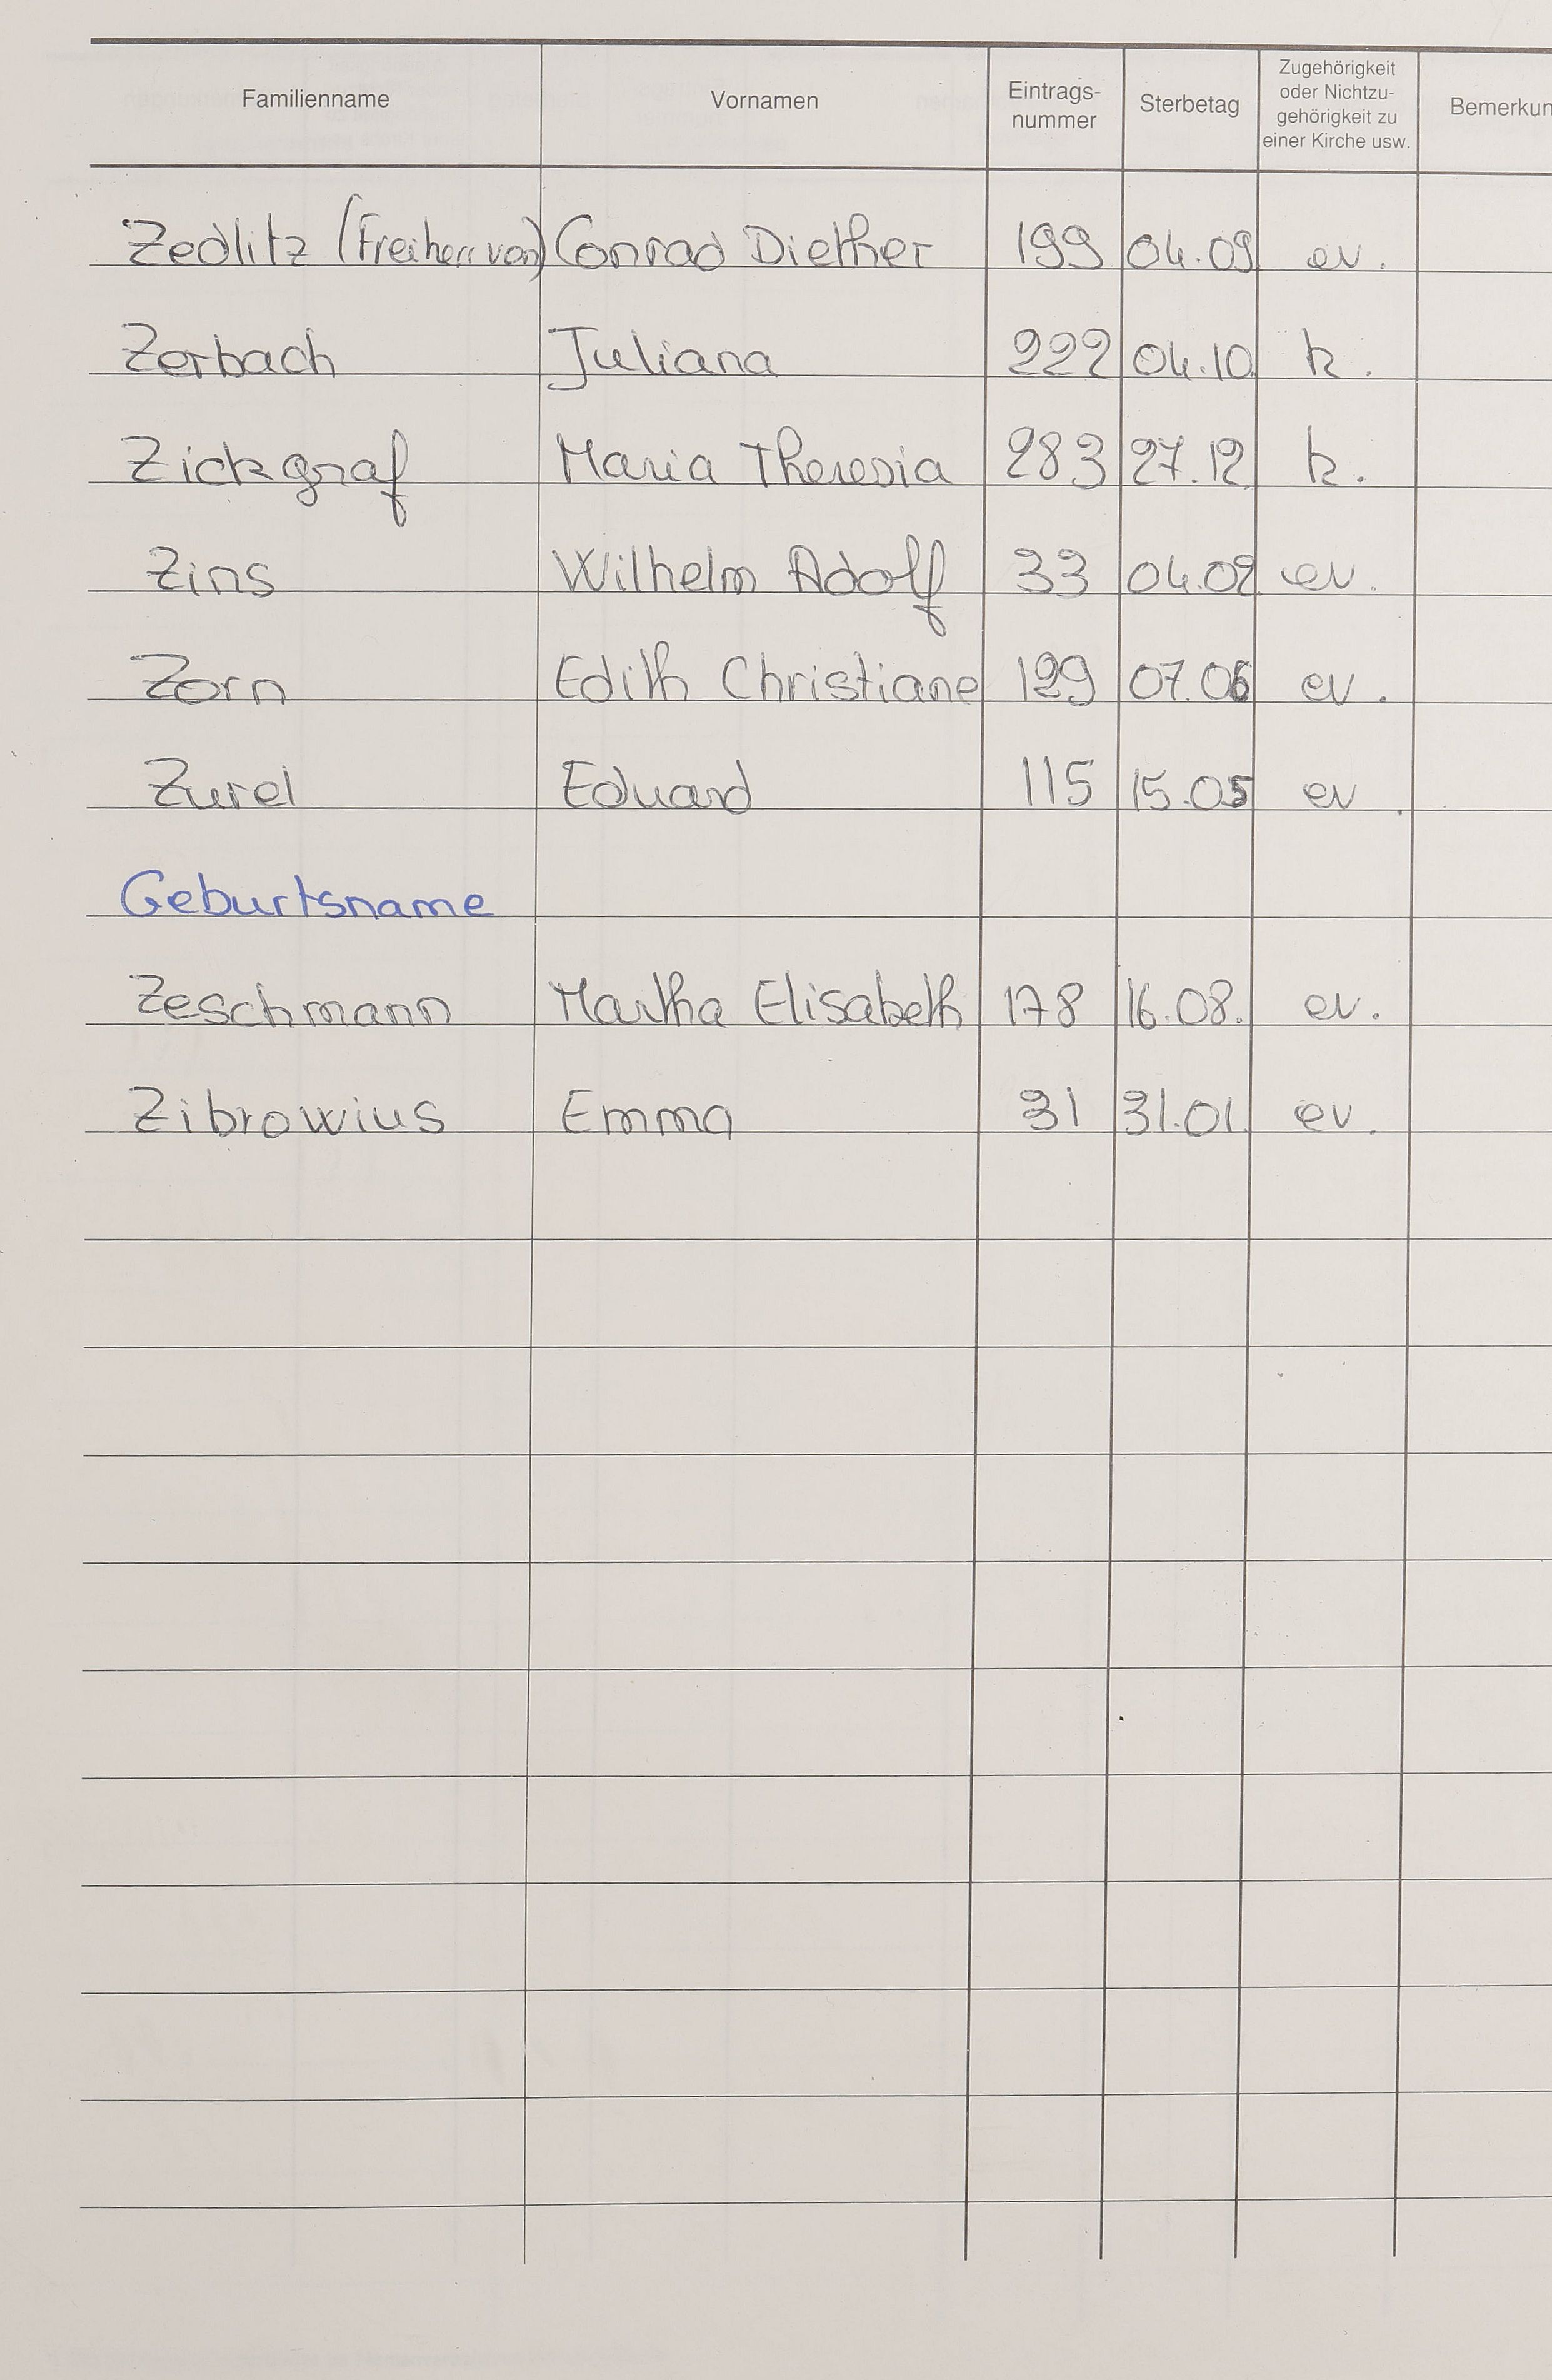 Familienname Vornamen Eintrags-nummer Sterbetag Zugehörigkeit oder Nichtzu-gehörigkeit zu einer Kirche usw. Bemerkun
Zedlitz (Freiherr von) Conrad Diether 199 04.09 ev.
Zerbach Juliana 222 04.10. k.
Zickgraf Maria Theresia 283 27.12. k.
Zins Wilhelm Adolf 33 04.02. ev.
Zorn Edith Christiane 129 07.06 ev.
Zurel Eduard 115 15.05 ev.
Geburtsname
Zeschmann Martha Elisabeth 178 16.08. ev.
Zibrowius Emma 31 31.01. ev.